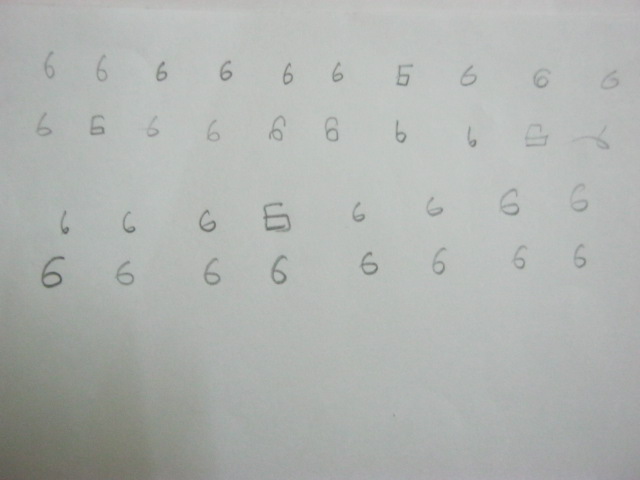 6 6 6 6 6 6 6 6 6 6
6 6 6 6 6 6 6 6 6 6
6 6 6 6 6 6 6 6
6 6 6 6 6 6 6 6